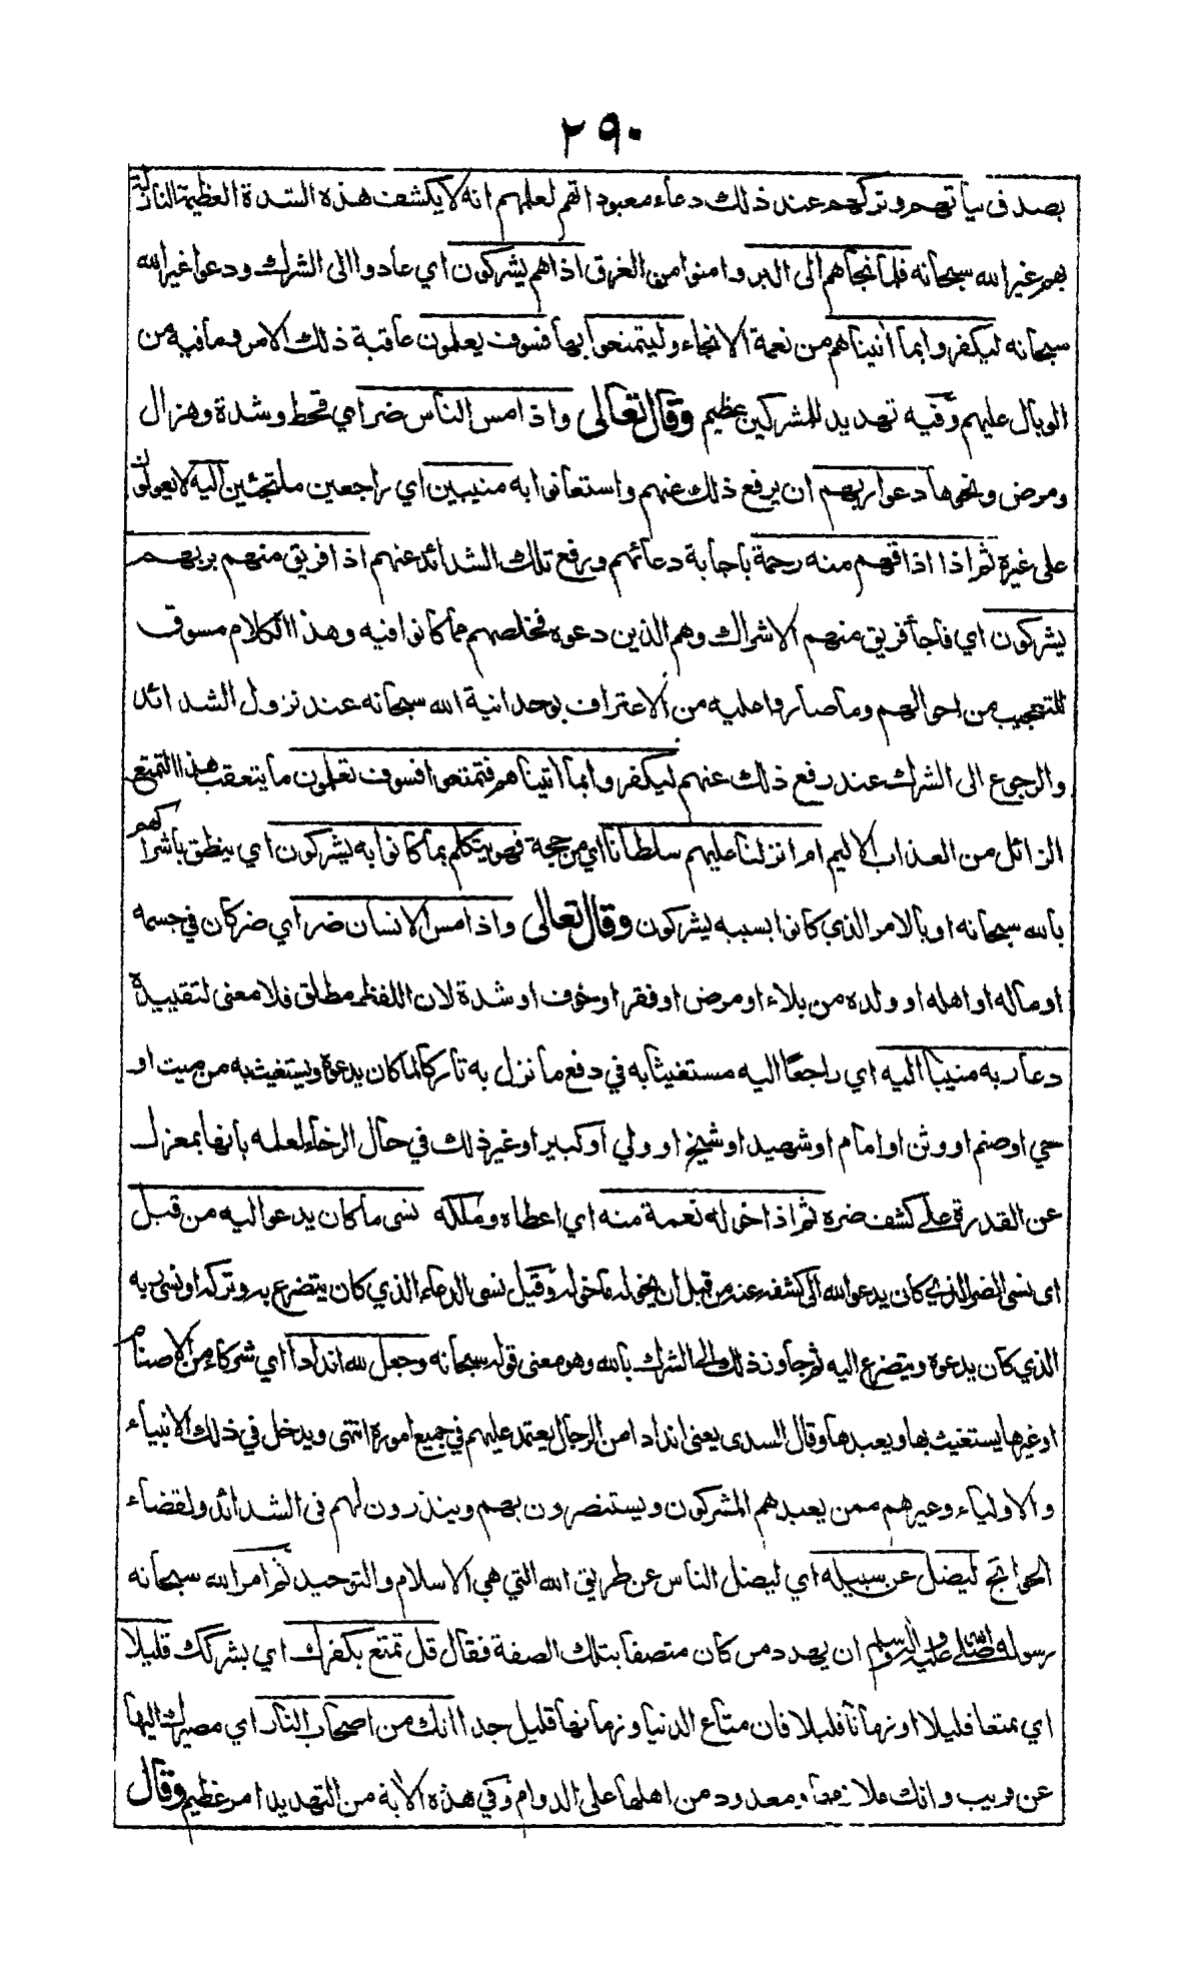 ٢٩٠
بصدق نياتهم وتركهم عند ذلك دعاء معبوداتهم لعلمهم انه لا يكشف هذه الشدة العظيمة النازلة
بهم غير الله سبحانه فلما نجاهم الى البر وامنوا من الغرق اذا هم يشركون اي عادوا الى الشرك ودعوا غير الله
سبحانه ليكفروا بما أتيناهم من نعمة الانجاء وليتمتعوا بها فسوف يعلمون عاقبة ذلك الامر وما فيه من
الوبال عليهم وفيه تهديد للمشركين عظيم وقال تعالى واذا مس الناس ضر اي قحط وشدة وهزال
ومرض ونحوها دعوا ربهم ان يرفع ذلك عنهم واستعانوا به منيبين اي راجعين ملتجئين اليه لا يعولون
على غيره ثم اذا اذاقهم منه رحمة باجابة دعائهم ورفع تلك الشدائد عنهم اذا فريق منهم بربهم
يشركون اي فاجأ فريق منهم الاشراك وهم الذين دعوه فخلصهم مما كانوا فيه وهذا الكلام مسوق
للتعجيب من احوالهم وما صاروا عليه من الاعتراف بوحدانية الله سبحانه عند نزول الشدائد
والرجوع الى الشرك عند رفع ذلك عنهم ليكفروا بما اتيناهم فتمتعوا فسوف تعلمون ما يتعقب هذا التمتع
الزائل من العذاب الاليم ام انزلنا عليهم سلطانا اي من حجة فهو يتكلم بما كانوا به يشركون اي ينطق باشراكهم
بالله سبحانه او بالامر الذي كانوا بسببه يشركون وقال تعالى واذا مس الانسان ضر اي ضر كان في جسمه
او ماله او اهله او ولده من بلاء او مرض او فقر او خوف او شدة لان اللفظ مطلق فلا معنى لتقييده
دعا ربه منيبا اليه اي راجعًا اليه مستغيثا به في دفع ما نزل به تاركا لما كان يدعوه ويستغيث به من ميت او
حي او صنم او وثن او امام او شهيد او شيخ او ولي او كبير او غير ذلك في حال الرخاء لعلمه بانها بمعزل
عن القدرة على كشف ضره ثم اذا خوله نعمة منه اي اعطاه وملكه نسى ما كان يدعو اليه من قبل
اى نسى الضر الذي كان يدعو الله الى كشفه عنه من قبل ان يخوله ما خوله وقيل نسى الدعاء الذي كان يتضرع به وتركه او نسى ربه
الذي كان يدعوه ويتضرع اليه ثم جاوز ذلك الى الشرك بالله وهو معنى قوله سبحانه وجعل لله اندادا اي شركاء من الاصنام
او غيرها يستغيث بها ويعبدها وقال السدى يعنى اندادا من الرجال يعتمد عليهم في جميع اموره انتهى ويدخل في ذلك الانبياء
والاولياء وغيرهم ممن يعبدهم المشركون ويستنصرون بهم وينذرون لهم فى الشدائد ولقضاء
الحوائج ليضل عن سبيله اي ليضل الناس عن طريق الله التي هي الاسلام والتوحيد ثم امر الله سبحانه
رسوله صلى الله عليه واله وسلم ان يهدد من كان متصفا بتلك الصفة فقال قل تمتع بكفرك اي بشركك قليلا
اي تمتعا قليلا او زمانا قليلا فان متاع الدنيا وزمانها قليل جدا انك من اصحاب النار اي مصيرك اليها
عن قريب وانك ملازمها ومعدود من اهلها على الدوام وفي هذه الاية من التهديد امر عظيم وقال